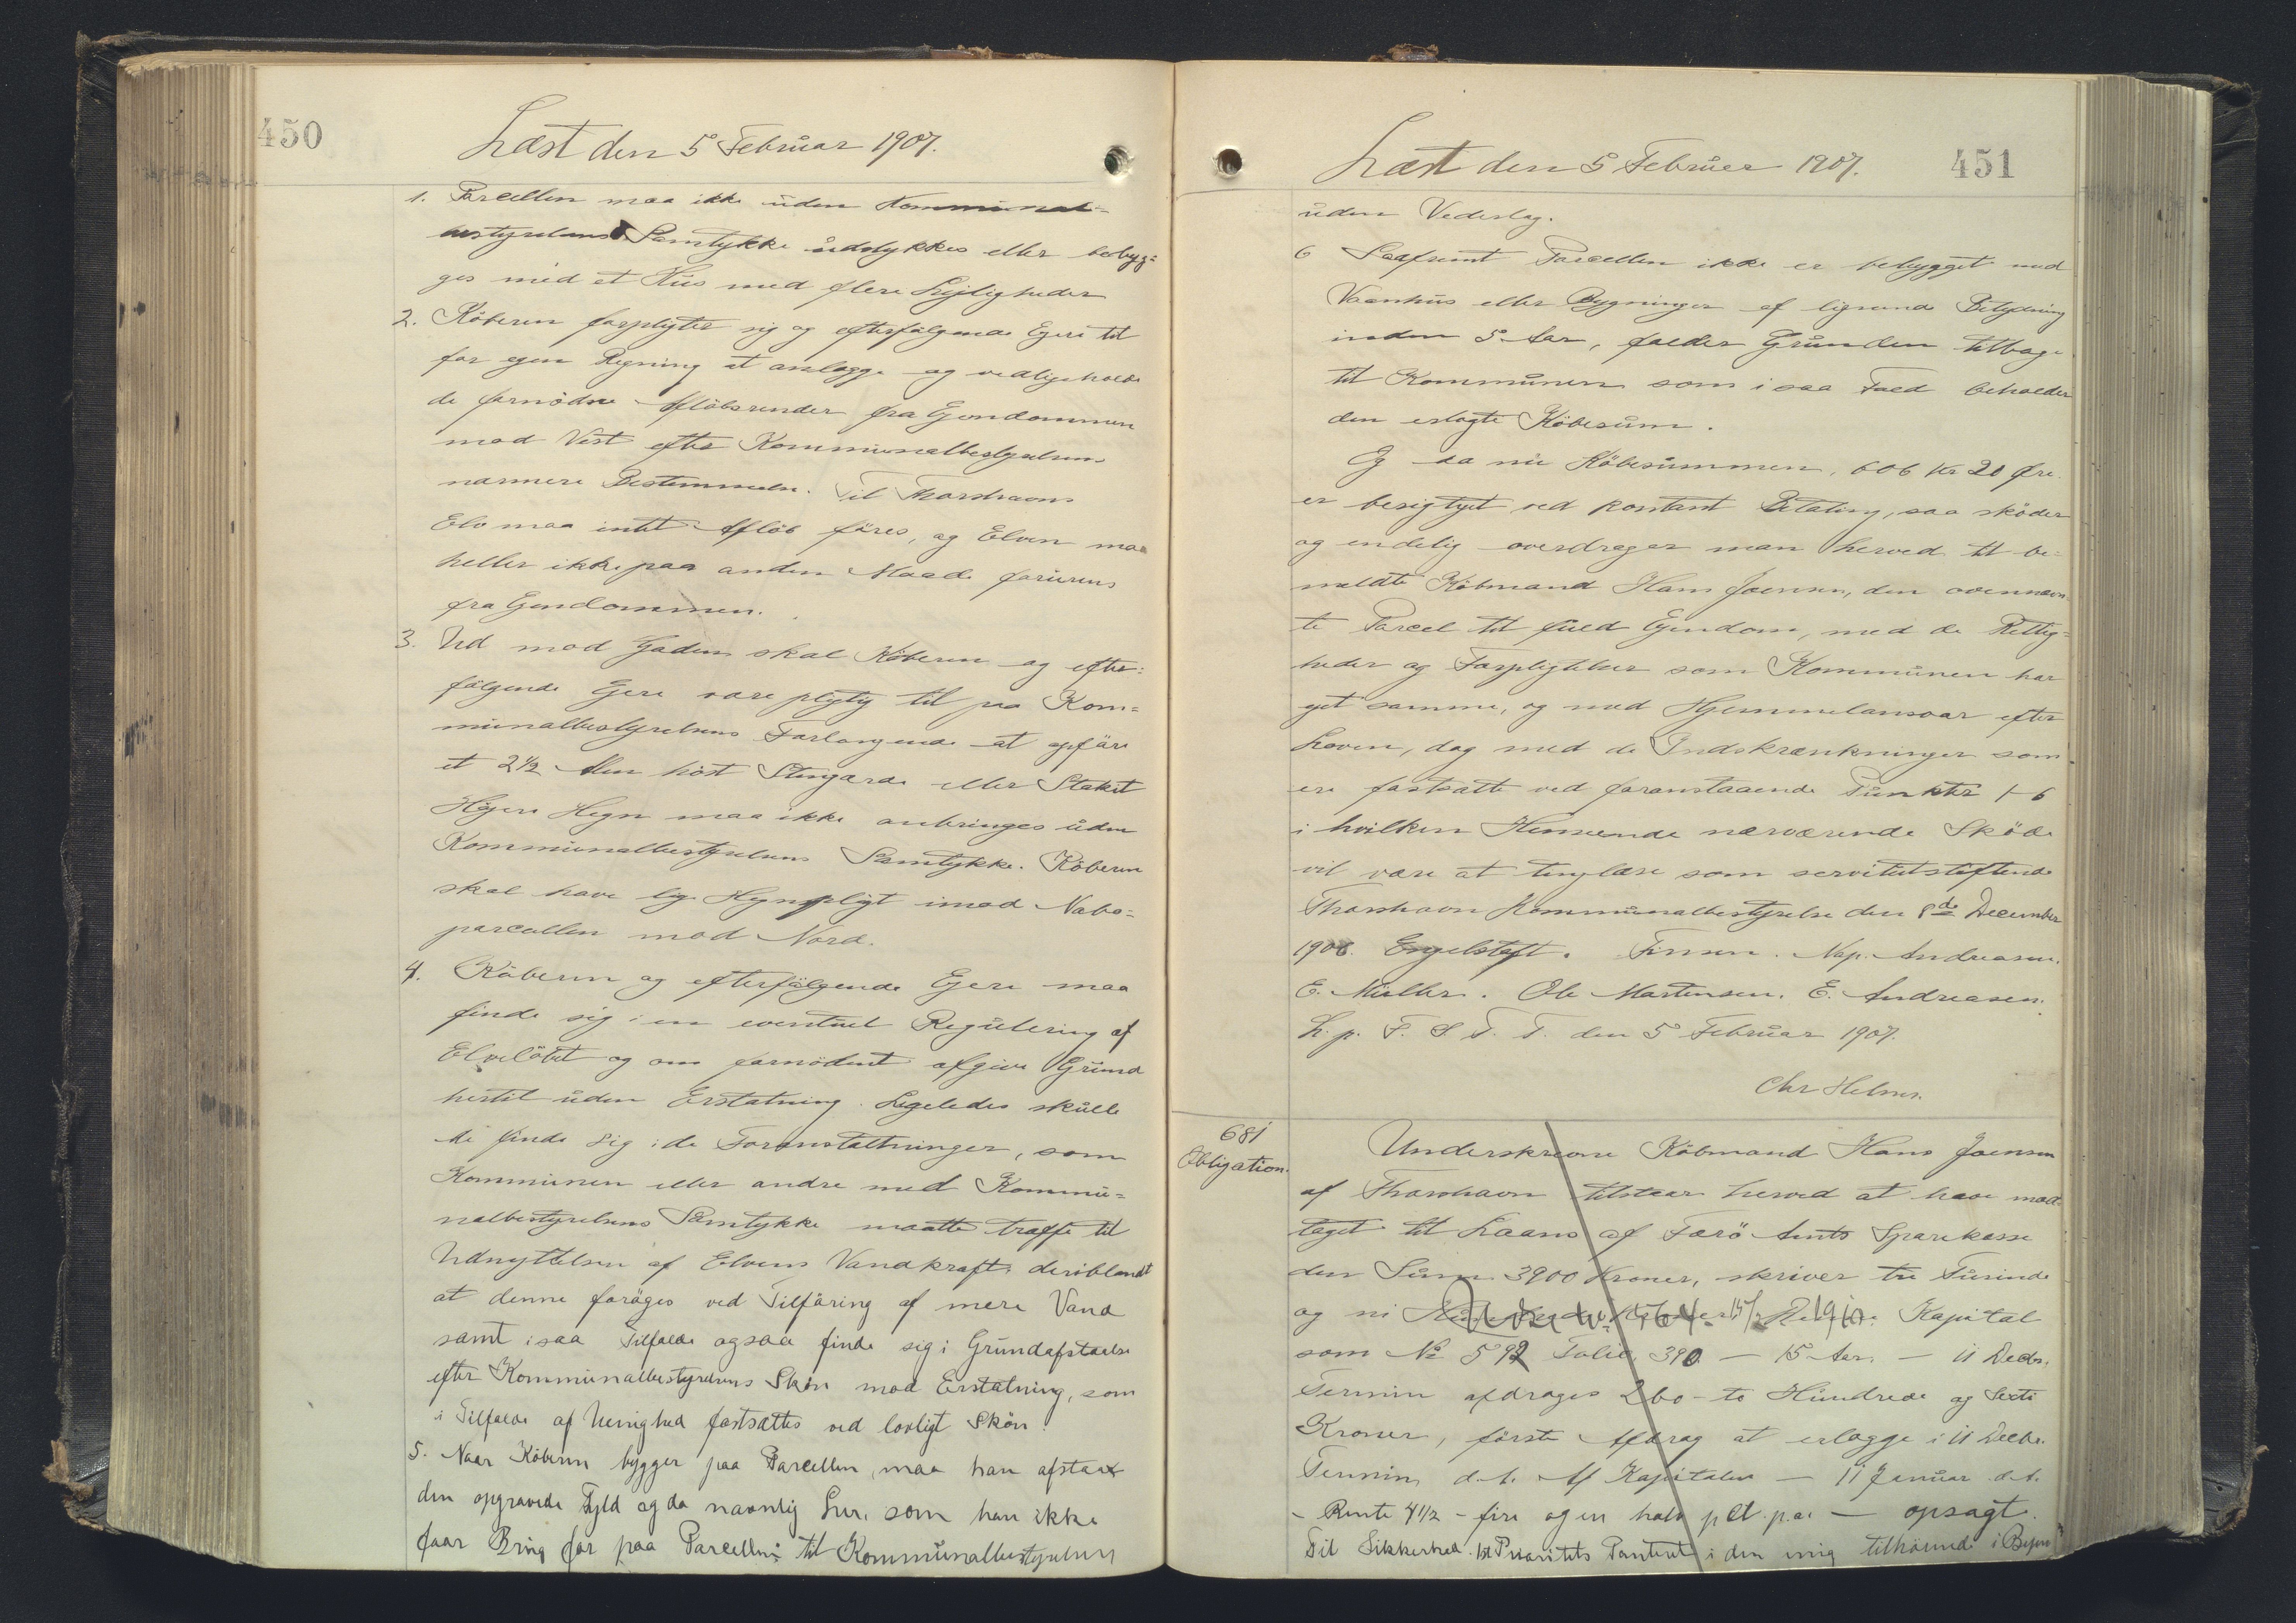 450
Læst den 5 Februar 1907.
1. Parcellen maa ikke uden Kommunal-
bestyrelsens Samtykke udstykkes eller bebyg-
ges med et Hus med flere Lejligheder
2. Köberen forpligter sig og efterfölgende Ejere til
for egen Regning at anlægge og vedligeholde
de fornödne Aflöbsrender fra Ejendommen
mod Vest efter Kommunalbestyrelsens
nærmere Bestemmelse. Til Thorshavns
Elv maa intet Aflöb föres, og Elven maa
heller ikke paa anden Maade forurens
fra Ejendommen.
3. Ud mod Gaden skal Köberen og efter-
fölgende Ejere være pligtig til paa Kom-
munalbestyrelsens Forlangende at opföre
et 2½ Alen höit Stengærde eller Stakit
Höjere Hegn maa ikke anbringes uden
Kommunalbestyrelsens Samtykke. Köberen
skal have lige Hegnspligt imod Nabo-
parcellen mod Nord.
4. Köberen og efterfölgende Ejere maa
finde sig i en eventuel Regulering af
Elvelöbet og om fornödent afgive Grund
hertil uden Erstatning. Ligeledes skulle
de finde sig i de Foranstaltninger, som
Kommunen eller andre med Kommu-
nalbestyrelsens Samtykke maatte træffe til
Udnyttelsen af Elvens Vandkraft deriblandt
at denne foröges ved Tilföring af mere Vand
samt i saa Tilfælde ogsaa finde sig i Grundafstaaelse
efter Kommunalbestyrelsens Skön mod Erstatning, som
i Tilfælde af Uenighed fastsættes ved lovligt Skön.
5. Naar Köberen bygger paa Parcellen, maa han afstaa
den opgravede Fyld og da navnlig Ler, som han ikke
faar Brug for paa Parcellen til Kommunalbestyrelsen
Læst den 5 Februar 1907.
451
uden Vederlag.
6 Saafremt Parcellen ikke er bebygget med
Vaanhus eller Bygninger af lignende Betydning
inden 5 Aar, falder Grunden tilbage
til Kommunen som i saa Fald beholder
den erlagte Köbesum.
Og da nu Köbesummen, 606 Kr 20 Øre
er berigtiget ved kontant Betaling, saa sköder
og endelig overdrager man herved til be-
meldte Köbmand Hans Joensen, den ovennævn-
te Parcel til fuld Ejendom, med de Rettig-
heder og Forpligtelser som Kommunen har
ejet samme, og med Hjemmelansvar efter
Loven, dog med de Indskrænkninger som
ere fastsatte ved foranstaaende Punkter 1-6
i hvilken Henseende nærværende Sköde
vil være at tinglæse som servitutstiftende
Thorshavn Kommunalbestyrelse den 8de December
1906. Engelstoft. Finsen. Nap. Andreasen.
E. Müller. Ole Martensen. E. Andreasen.
L. p. F. S T. T. den 5 Februar 1907.
Chr Helms.
681
Obligation.
Underskrevne Köbmand Hans Joensen
af Thorshavn tilstaar herved at have mod-
taget til Laans af Færö Amts Sparekasse
den Sum 3900 Kroner, skriver tre Tusinde
og ni Kapital
som № 592 Folio 390 — 15 Aar. — 11 Decbr.
Termin afdrages 260 - to Hundrede og Sexti
Kroner, förste Afdrag at erlægge i 11 Decbr.
Termin d. A. Af Kapitalen — 11 Januar d. A.
- Rente 4½ - fire og en halv pCt. p. a. — opsagt.
Til Sikkerhed 1st Prioritets Panteret i den mig tilhörende i